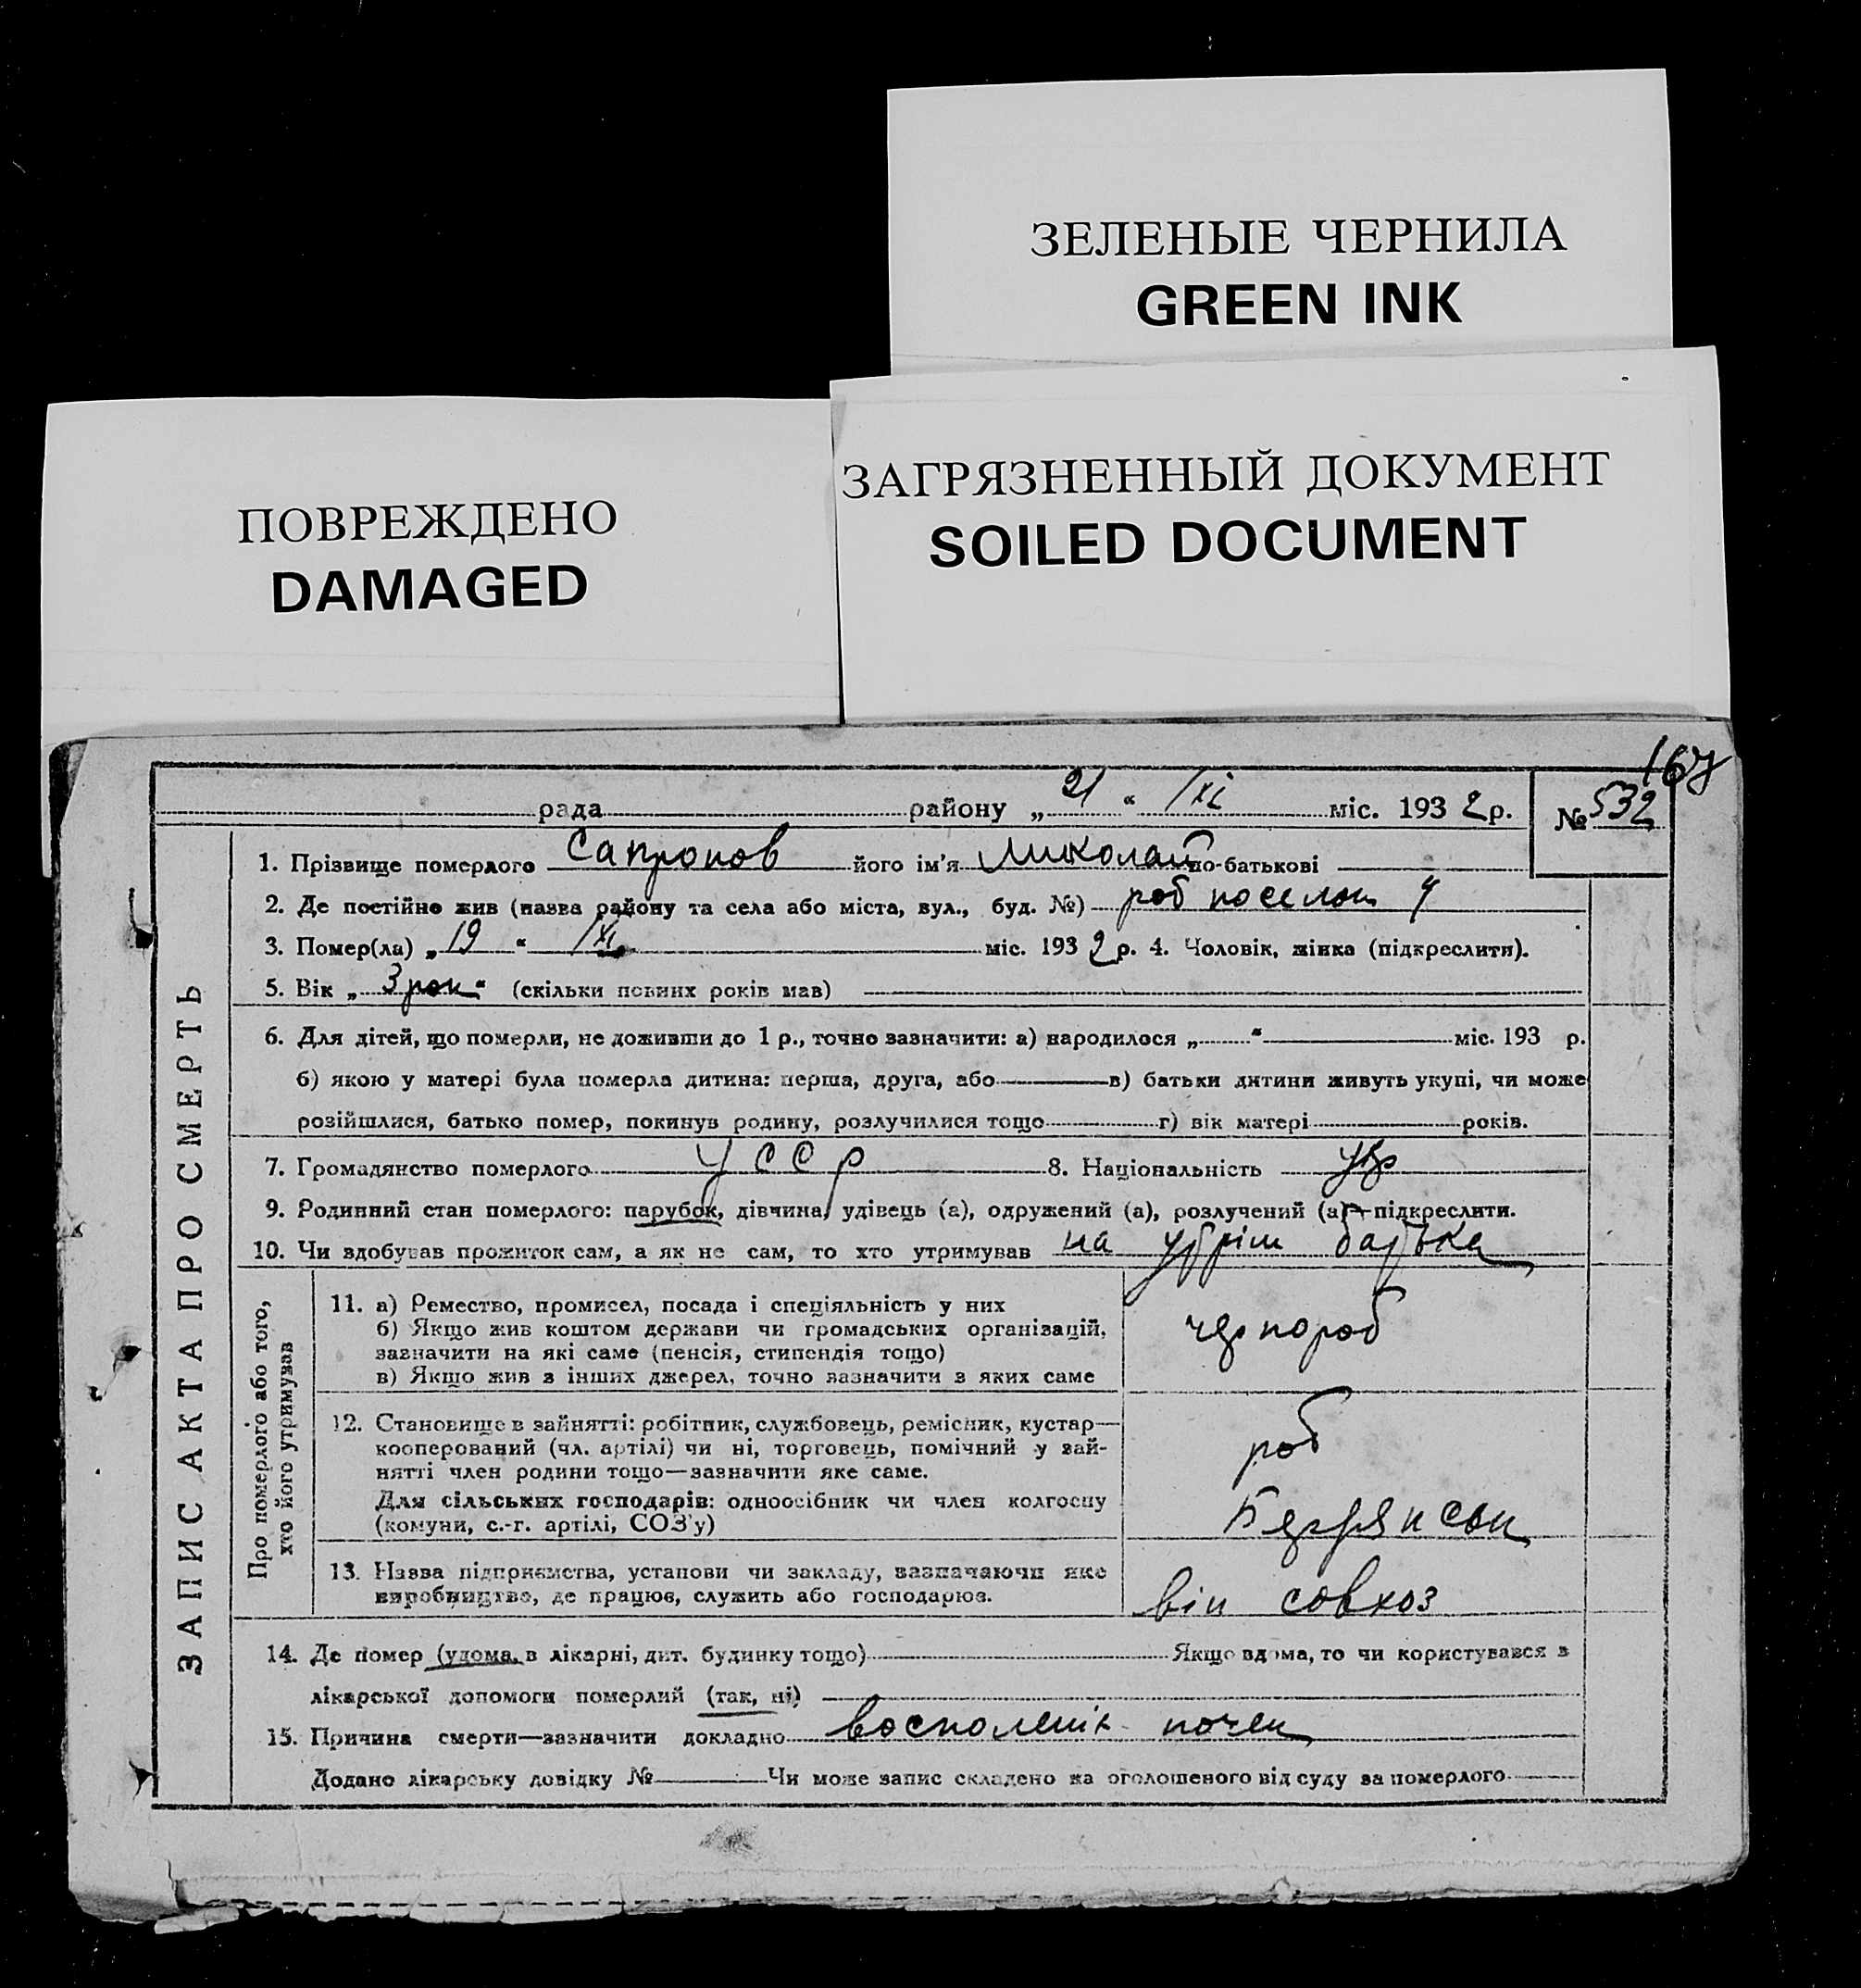 ЗЕЛЕНЫЕ ЧЕРНИЛА
GREEN INK
ПОВРЕЖДЕНО
DAMAGED
ЗАГРЯЗНЕННЫЙ ДОКУМЕНТ
SOILED DOCUMENT
167
рада району „21“ /XI міс. 1932 р. № 532
ЗАПИС АКТА ПРО СМЕРТЬ
1. Прізвище померлого Сапронов його ім'я Миколай по-батькові
2. Де постійно жив (назва району та села або міста, вул., буд. №) роб поселок
3. Помер(ла) „19“ /XI міс. 1932 р. 4. Чоловік, жінка (підкреслити).
5. Вік „3 рок“ (скільки повних років мав)
6. Для дітей, що померли, не доживши до 1 р., точно зазначити: а) народилося „ “ міс. 193 р.
б) якою у матері була померла дитина: перша, друга, або в) батьки дитини живуть укупі, чи може
розійшлися, батько помер, покинув родину, розлучилися тощо г) вік матері років.
7. Громадянство померлого УССР 8. Національність укр
9. Родинний стан померлого: парубок, дівчина, удівець (а), одружений (а), розлучений (а)—підкреслити.
10. Чи здобував прожиток сам, а як не сам, то хто утримував на утрім батька
Про померлого або того,
хто його утримував
11. а) Ремество, промисел, посада і спеціяльність у них
б) Якщо жив коштом держави чи громадських організацій,
зазначити на які саме (пенсія, стипендія тощо)
в) Якщо жив з інших джерел, точно зазначити з яких саме
чернороб
12. Становище в зайнятті: робітник, службовець, ремісник, кустар—
кооперований (чл. артілі) чи ні, торговець, помічний у зай-
нятті член родини тощо—зазначити яке саме.
Для сільських господарів: одноосібник чи член колгоспу
(комуни, с.-г. артілі, СОЗ'у)
роб
13. Назва підприємства, установи чи закладу, зазначаючи яке
виробництво, де працює, служить або господарює.
він совхоз
14. Де помер (удома, в лікарні, дит. будинку тощо) Якщо вдома, то чи користувався з
лікарської допомоги померлий (так, ні)
15. Причина смерти—зазначити докладно восполеніє почек
Додано лікарську довідку № Чи може запис складено на оголошеного від суду за померлого